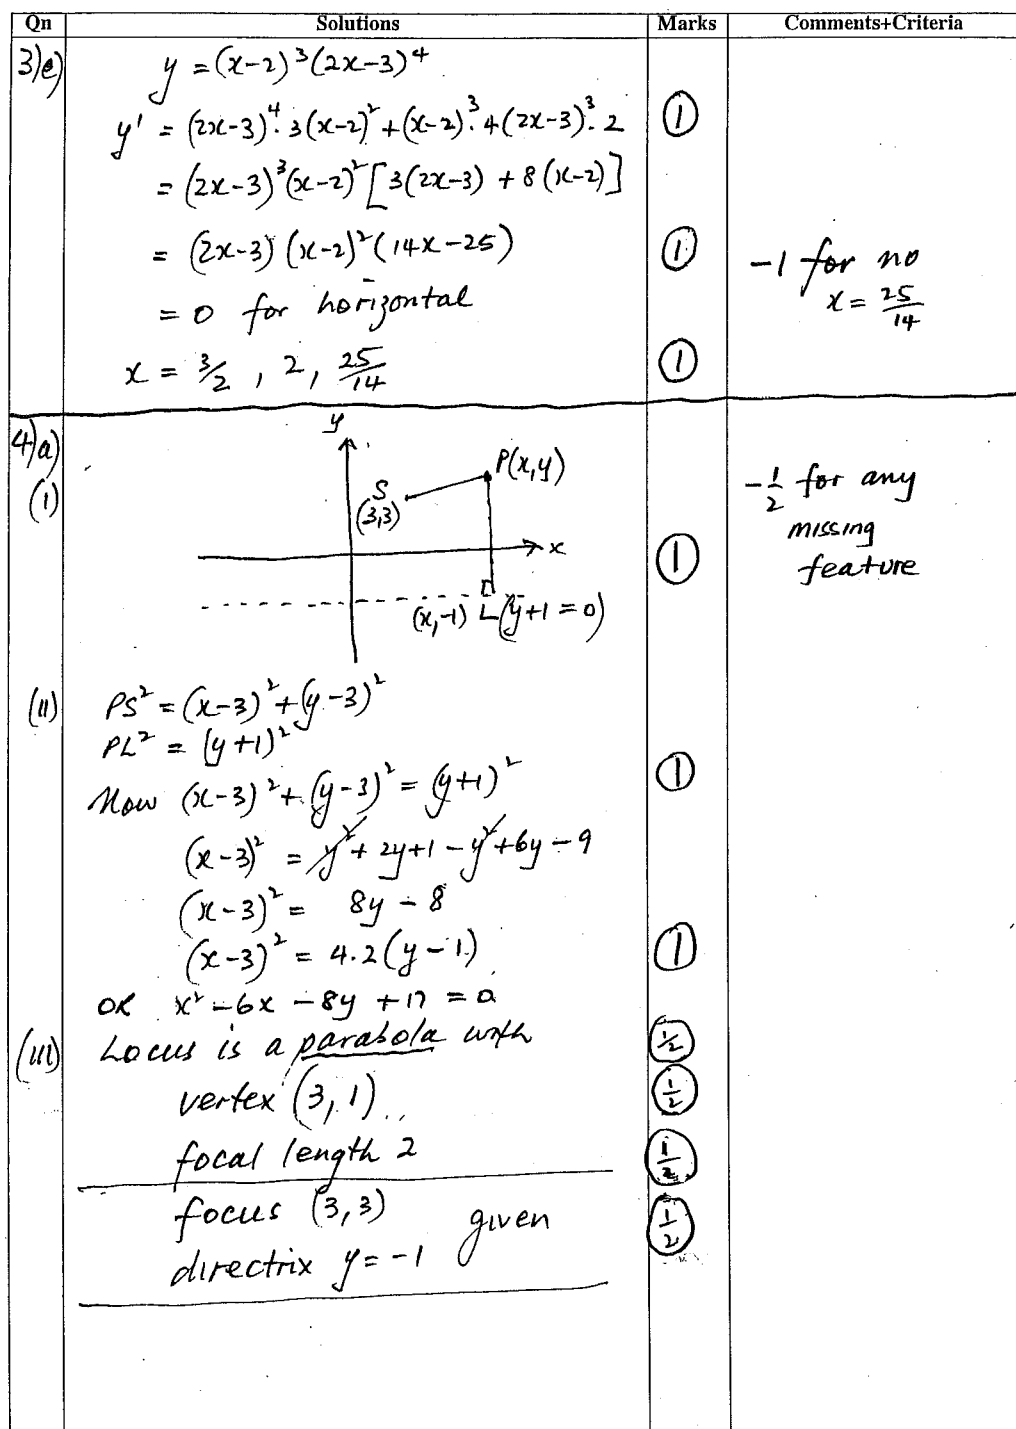 Qn Solutions Marks Comments+Criteria
3)e) y = (x-2)³(2x-3)⁴
y' = (2x-3)⁴. 3(x-2)² + (x-2)³. 4(2x-3)³. 2 1
= (2x-3)³(x-2)² [3(2x-3) + 8(x-2)]
= (2x-3) (x-2)² (14x-25) 1 -1 for no
= 0 for horizontal x = 25/14
x = 3/2, 2, 25/14 1
4)a) y
P(x,y) -1/2 for any
(i) S missing
(3,3) feature
x 1
(x,-1) L (y+1=0)
(ii) PS² = (x-3)² + (y-3)²
PL² = (y+1)²
Now (x-3)² + (y-3)² = (y+1)² 1
(x-3)² = y² + 2y+1 - y² + 6y - 9
(x-3)² = 8y - 8
(x-3)² = 4.2(y-1) 1
OR x² - 6x - 8y + 17 = 0
(iii) Locus is a parabola with 1/2
vertex (3,1) 1/2
focal length 2 1/2
focus (3,3) given 1/2
directrix y = -1